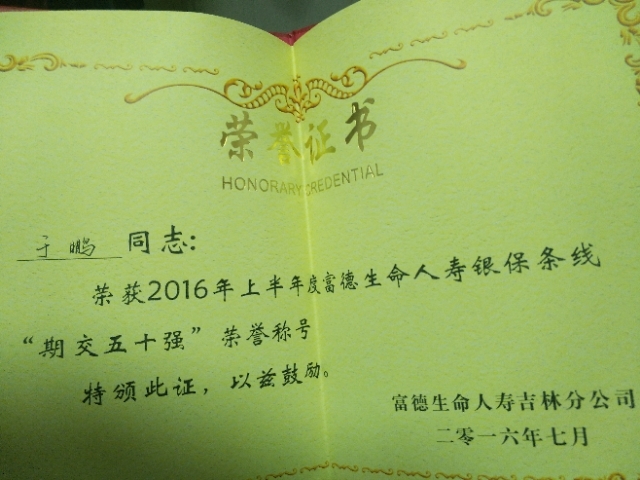 荣誉证书
HONORARY CREDENTIAL
于鹏 同志:
荣获2016年上半年度富德生命人寿银保条线
“期交五十强”荣誉称号
特颁此证，以兹鼓励。
富德生命人寿吉林分公司
二零一六年七月